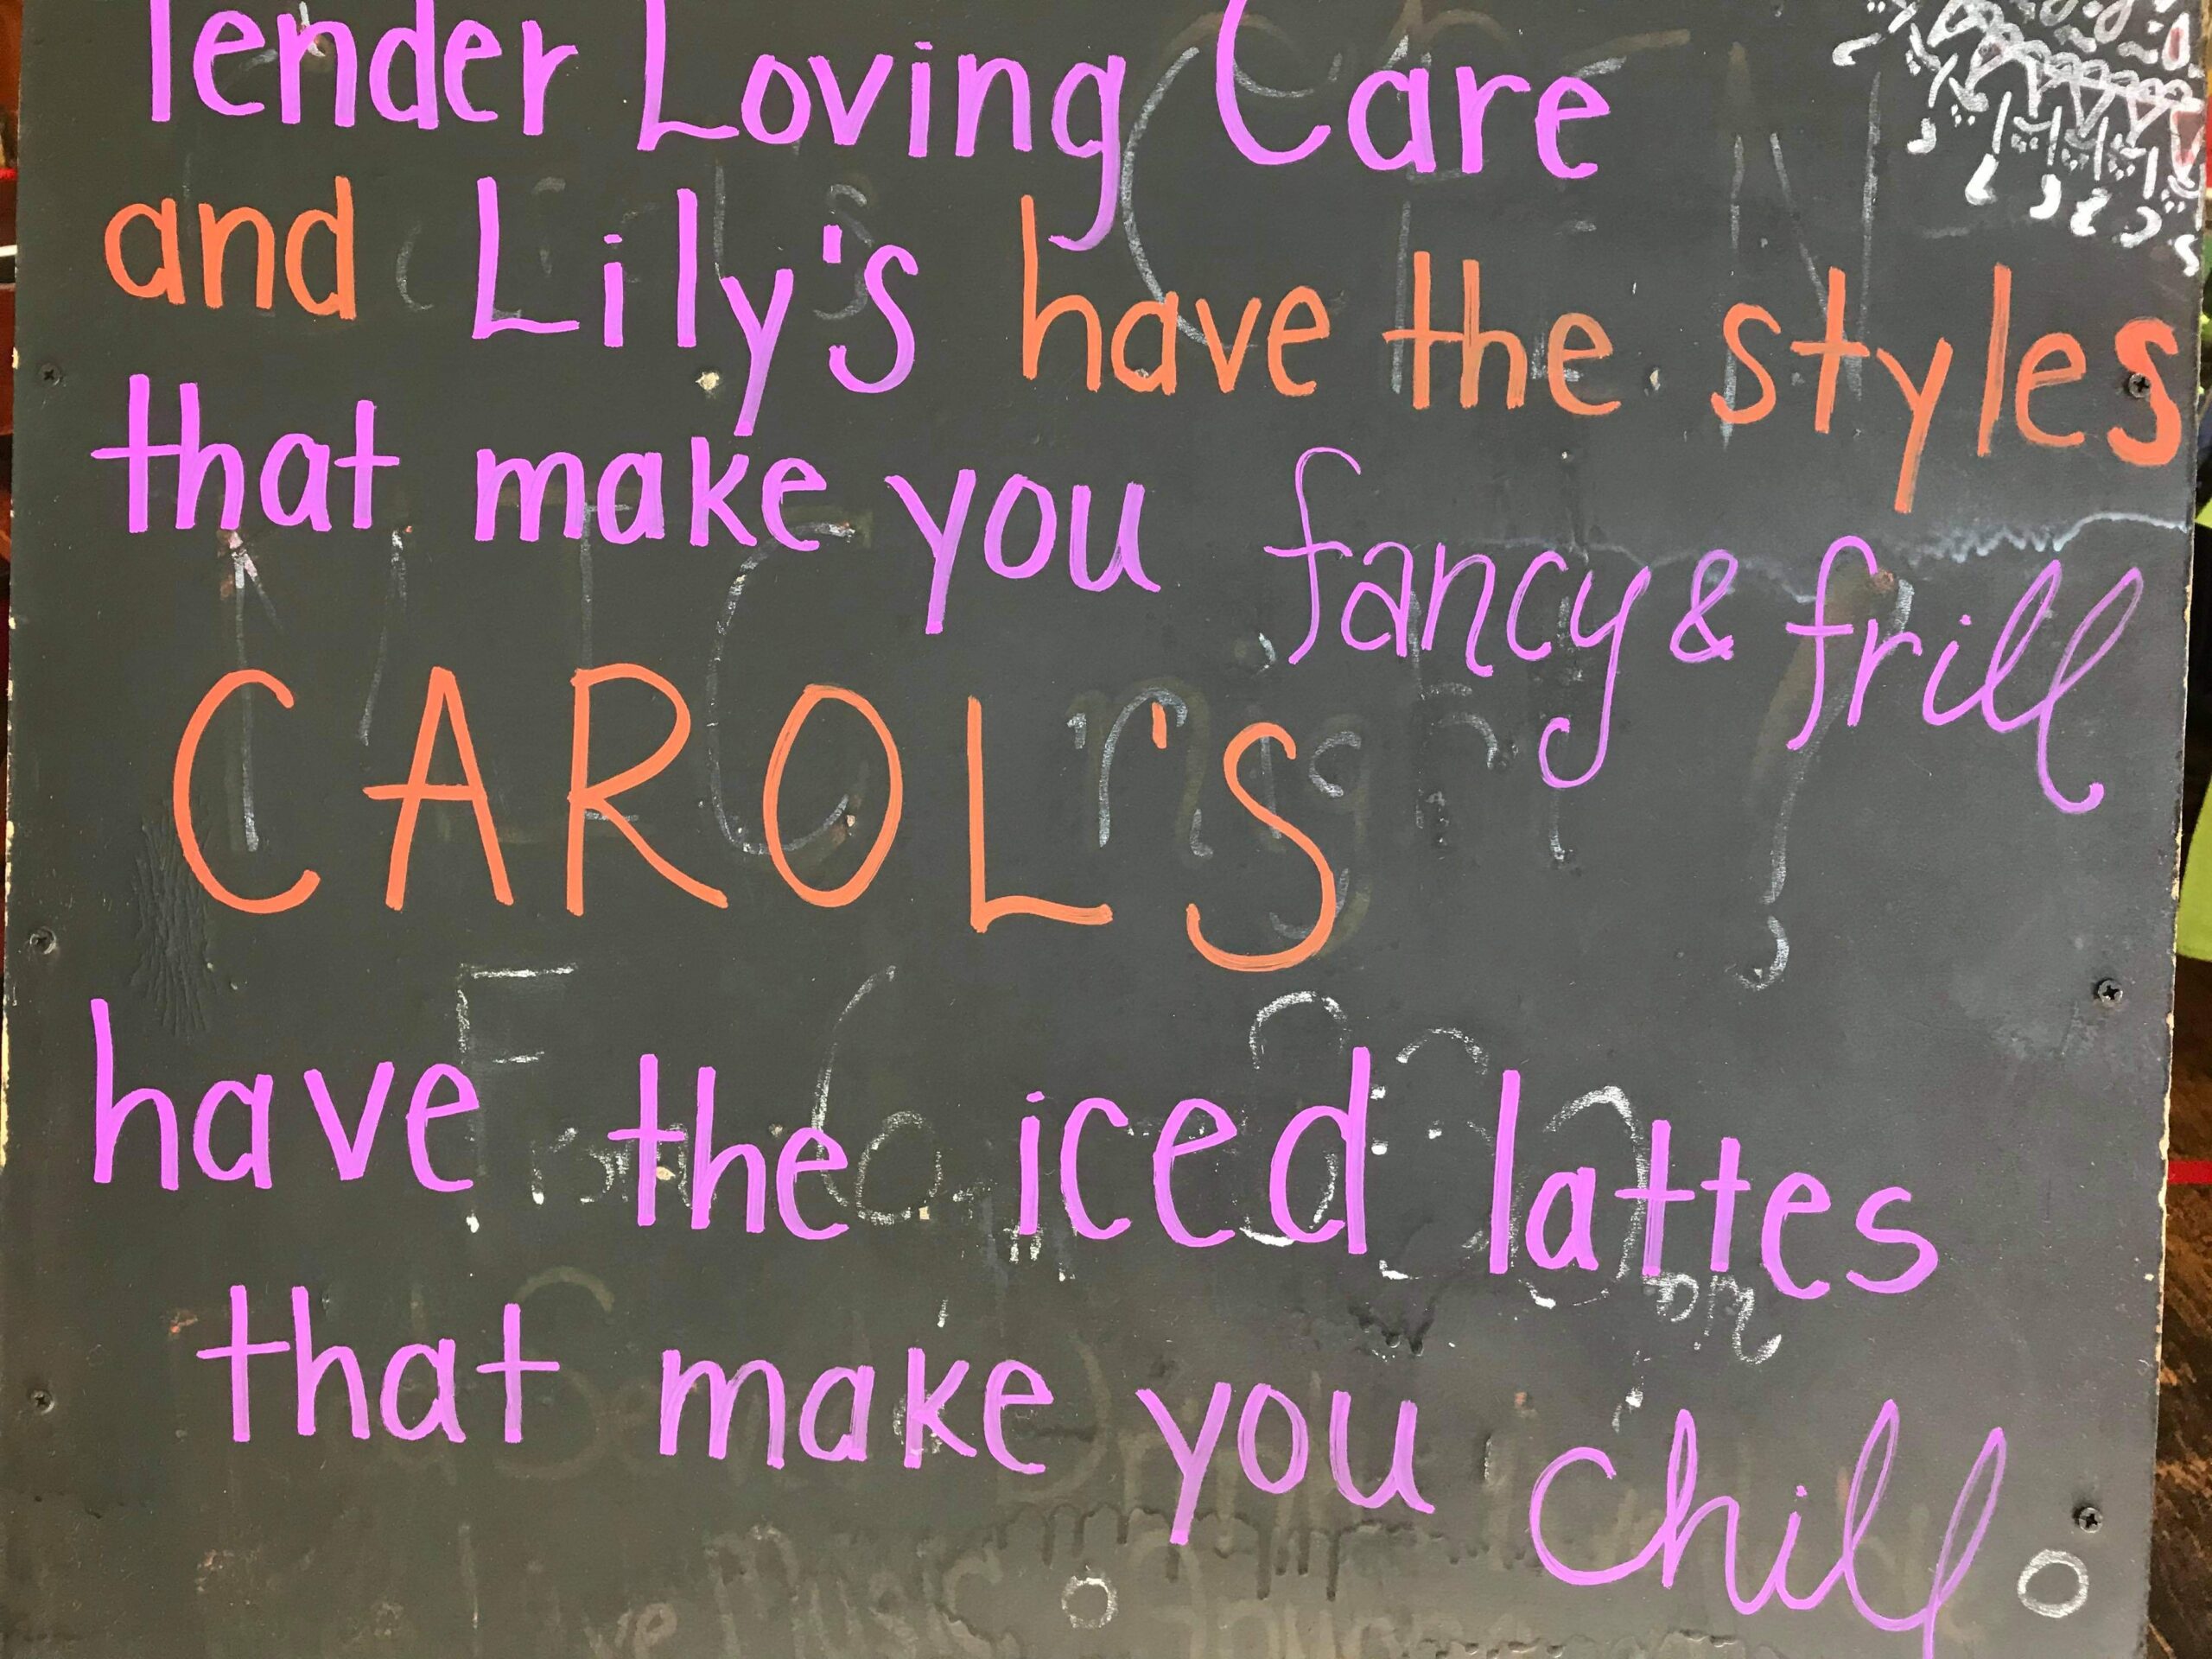 Tender Loving Care
and Lily's have the styles
that make you fancy & frill
CAROL'S
have the iced lattes
that make you chill